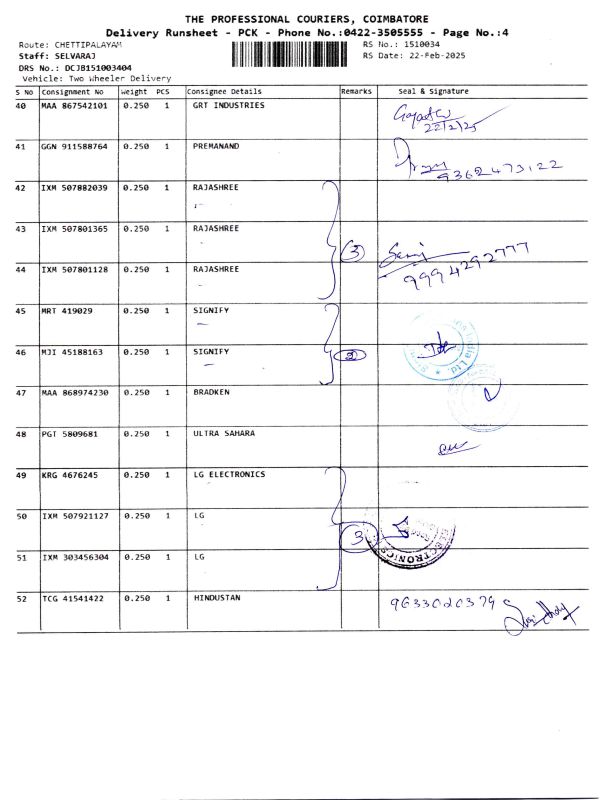 THE PROFESSIONAL COURIERS, COIMBATORE
Delivery Runsheet - PCK - Phone No.:0422-3505555 - Page No.:4
Route: CHETTIPALAYAM RS No.: 1510034
Staff: SELVARAJ RS Date: 22-Feb-2025
DRS No.: DCJB151003404
Vehicle: Two Wheeler Delivery
S No Consignment No Weight PCS Consignee Details Remarks Seal & Signature
40 MAA 867542101 0.250 1 GRT INDUSTRIES
22/2/25
41 GGN 911588764 0.250 1 PREMANAND
9362473122
42 IXM 507882039 0.250 1 RAJASHREE
43 IXM 507801365 0.250 1 RAJASHREE
3
9994292777
44 IXM 507801128 0.250 1 RAJASHREE
45 MRT 419029 0.250 1 SIGNIFY
46 MJI 45188163 0.250 1 SIGNIFY
2
47 MAA 868974230 0.250 1 BRADKEN
48 PGT 5809681 0.250 1 ULTRA SAHARA
49 KRG 4676245 0.250 1 LG ELECTRONICS
50 IXM 507921127 0.250 1 LG
3
51 IXM 303456304 0.250 1 LG
ELECTRONICS
52 TCG 41541422 0.250 1 HINDUSTAN
9633020379